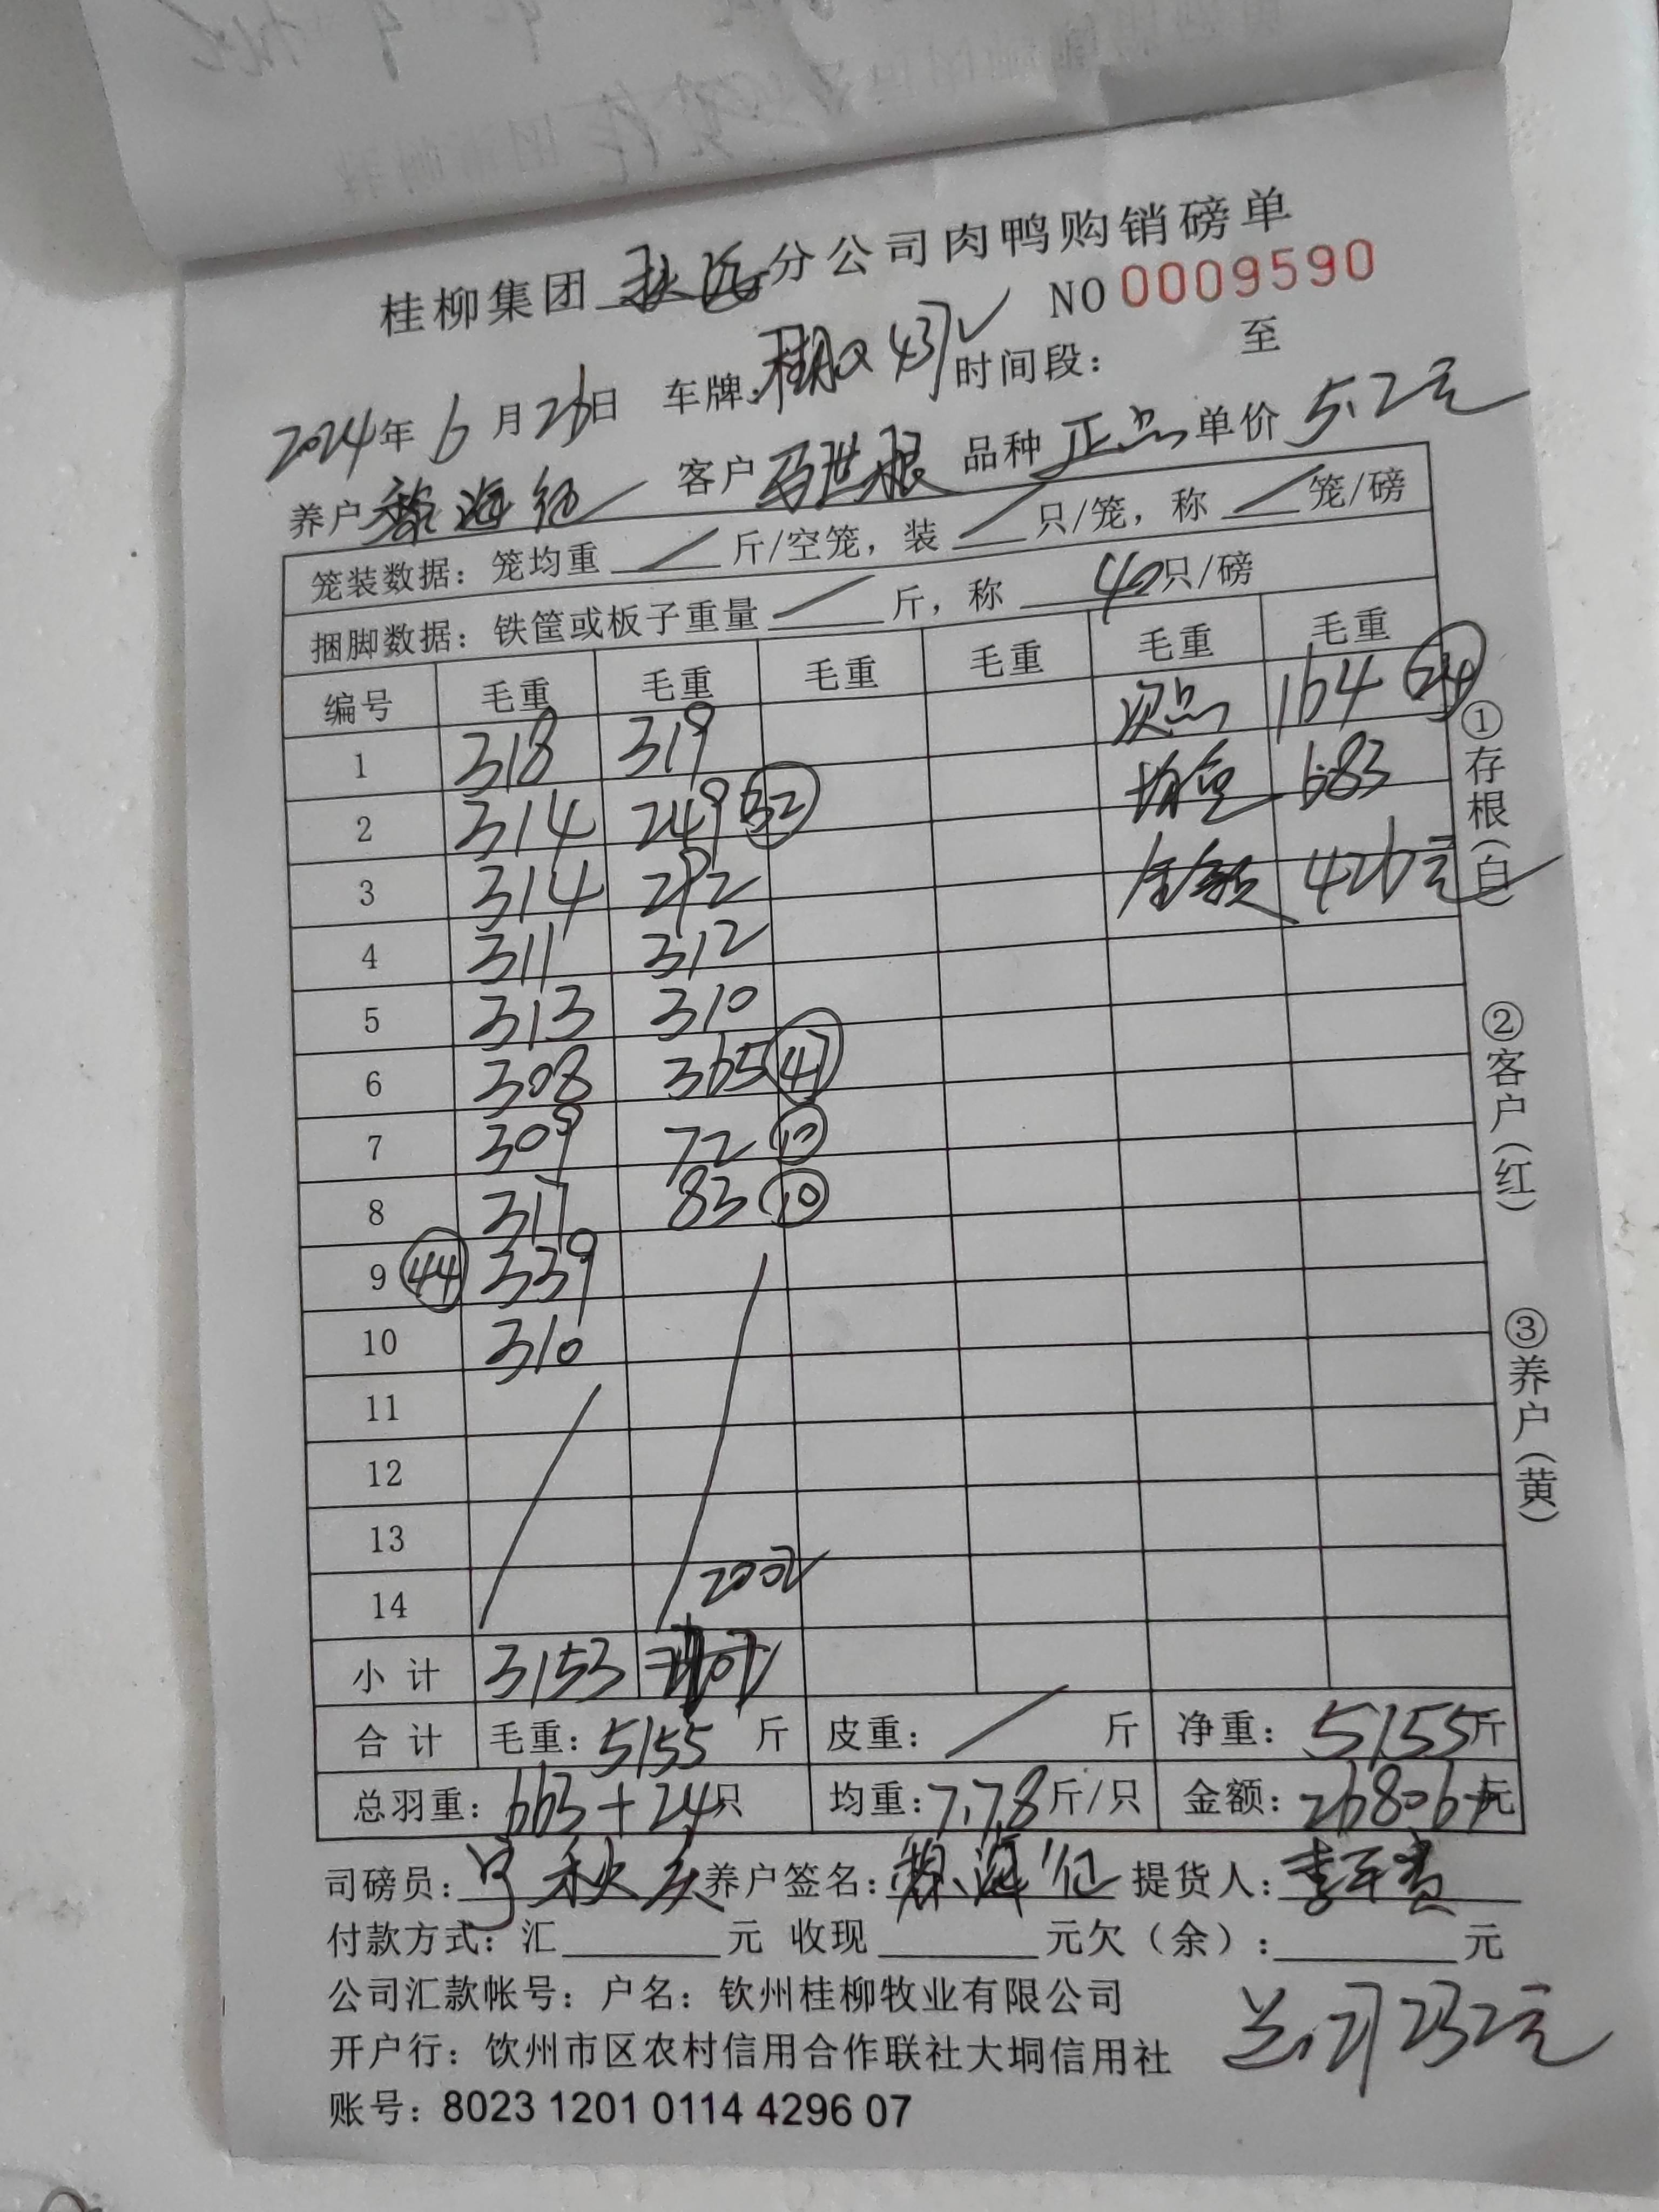 桂柳集团 分公司肉鸭购销磅单
NO 0009590
2024年 6 月 26日 车牌: 时间段: 至
养户 黎海 客户 世根 品种 正品 单价 5.2元
笼装数据: 笼均重 / 斤/空笼, 装 / 只/笼, 称 / 笼/磅
捆脚数据: 铁筐或板子重量 / 斤, 称 40只/磅
编号 毛重 毛重 毛重 毛重 毛重 毛重
1 318 319 次品 164 24
2 314 249 32 均重 6.83
3 314 292 金额 426元
4 311 312
5 313 310
6 308 365 47
7 309 72 10
8 311 83 10
9 44 339
10 310
11
12
13
14 2002
小 计 3153
合 计 毛重: 5155 斤 皮重: / 斤 净重: 5155斤
总羽重: 663+24只 均重: 7.78斤/只 金额: 26806元
司磅员: 养户签名: 提货人:
付款方式: 汇 元 收现 元欠(余): 元
公司汇款帐号: 户名: 钦州桂柳牧业有限公司
总: 27232元
开户行: 饮州市区农村信用合作联社大垌信用社
账号: 8023 1201 0114 4296 07
①存根(白)
②客户(红)
③养户(黄)